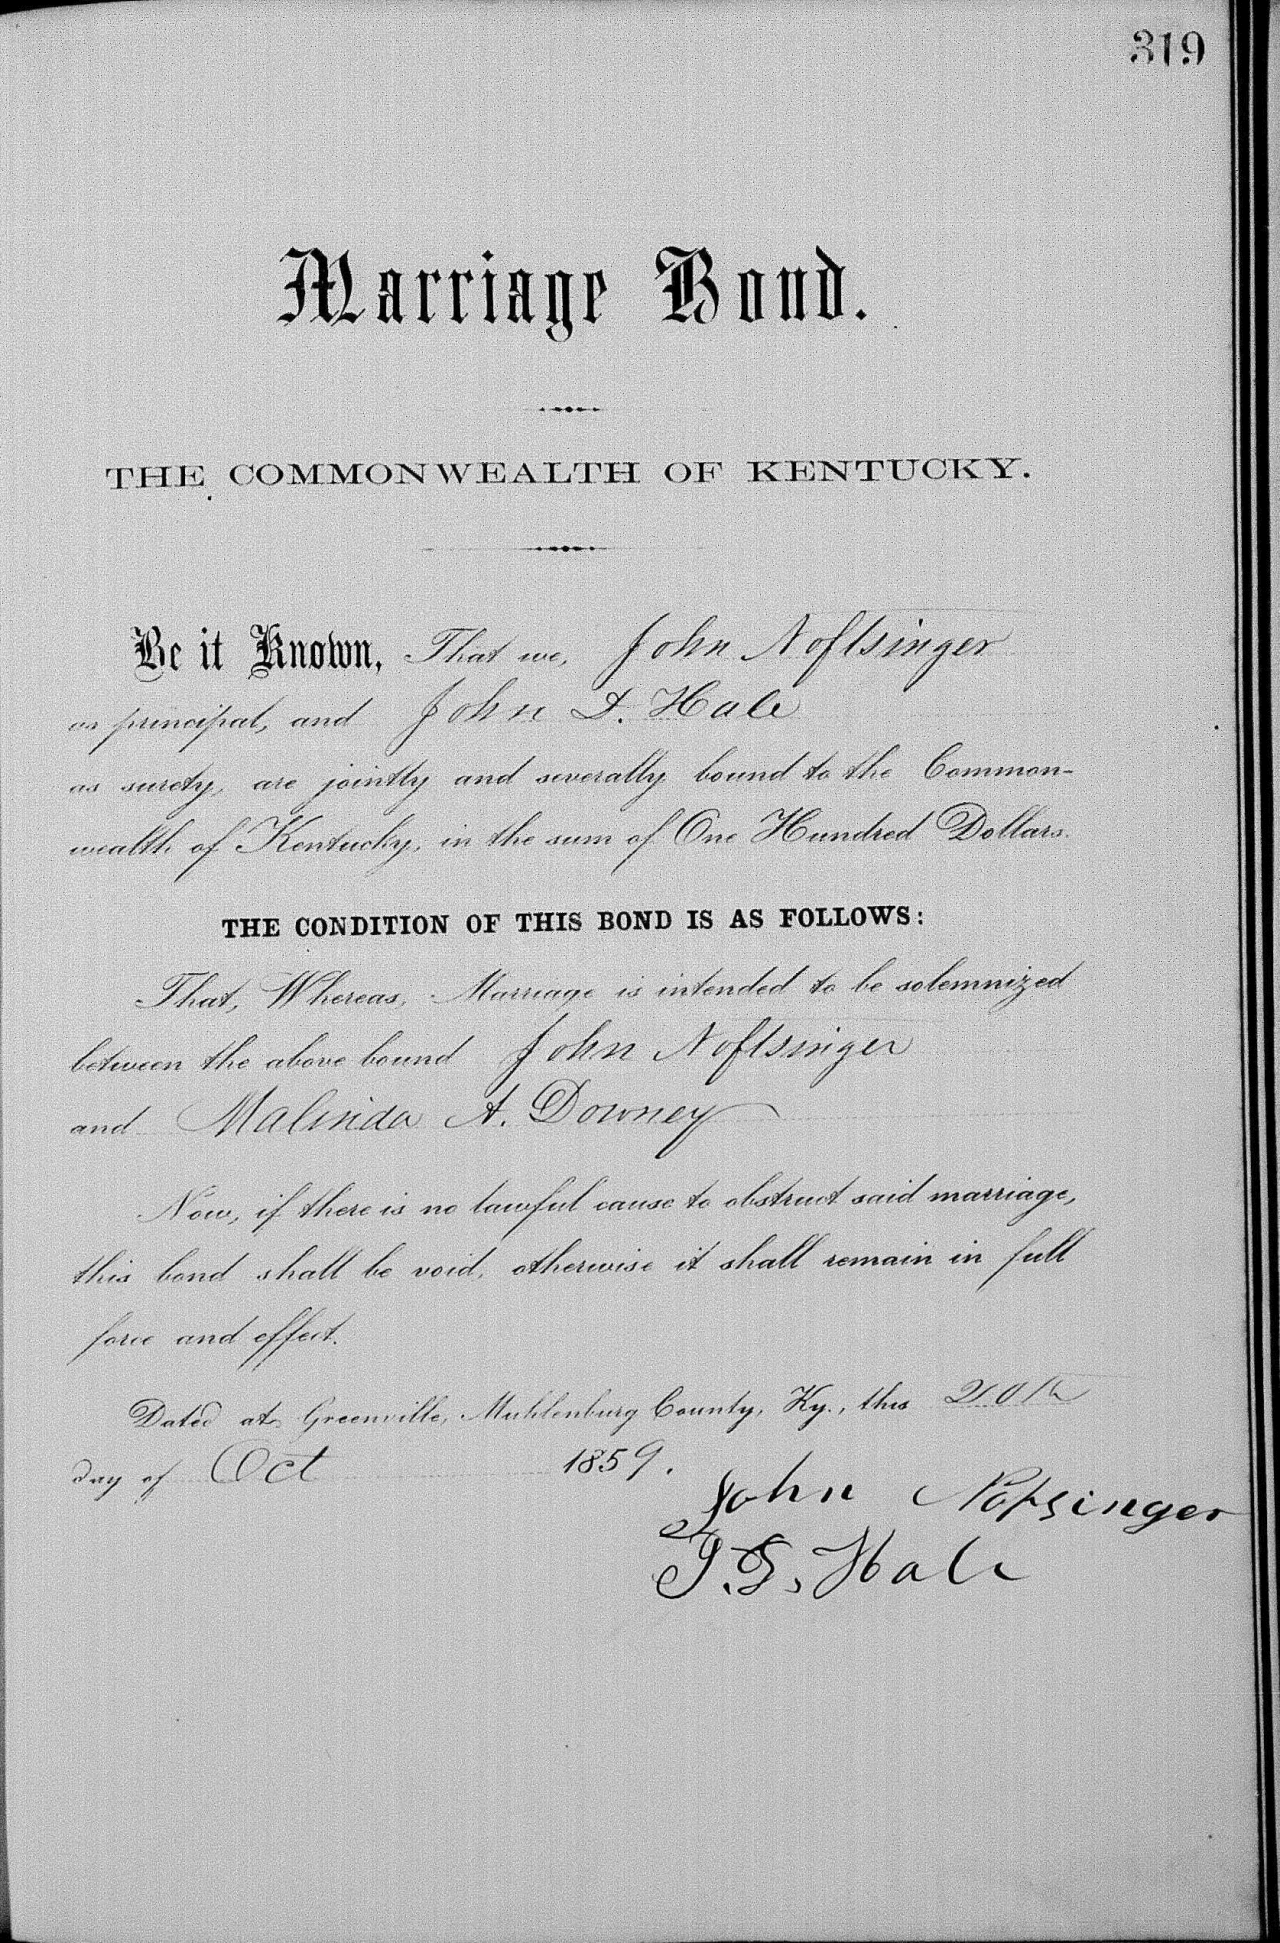 319
Marriage Bond.
THE COMMONWEALTH OF KENTUCKY.
Be it Known, That we, John Noftsinger
as principal, and John D. Hale
as surety, are jointly and severally bound to the Common-
wealth of Kentucky, in the sum of One Hundred Dollars.
THE CONDITION OF THIS BOND IS AS FOLLOWS:
That, Whereas, Marriage is intended to be solemnized
between the above bound John Noftsinger
and Malinda A. Downey
Now, if there is no lawful cause to obstruct said marriage,
this bond shall be void, otherwise it shall remain in full
force and effect.
Dated at Greenville, Muhlenburg County, Ky., this 20th
day of Oct 1859.
John Nofsinger
Hale